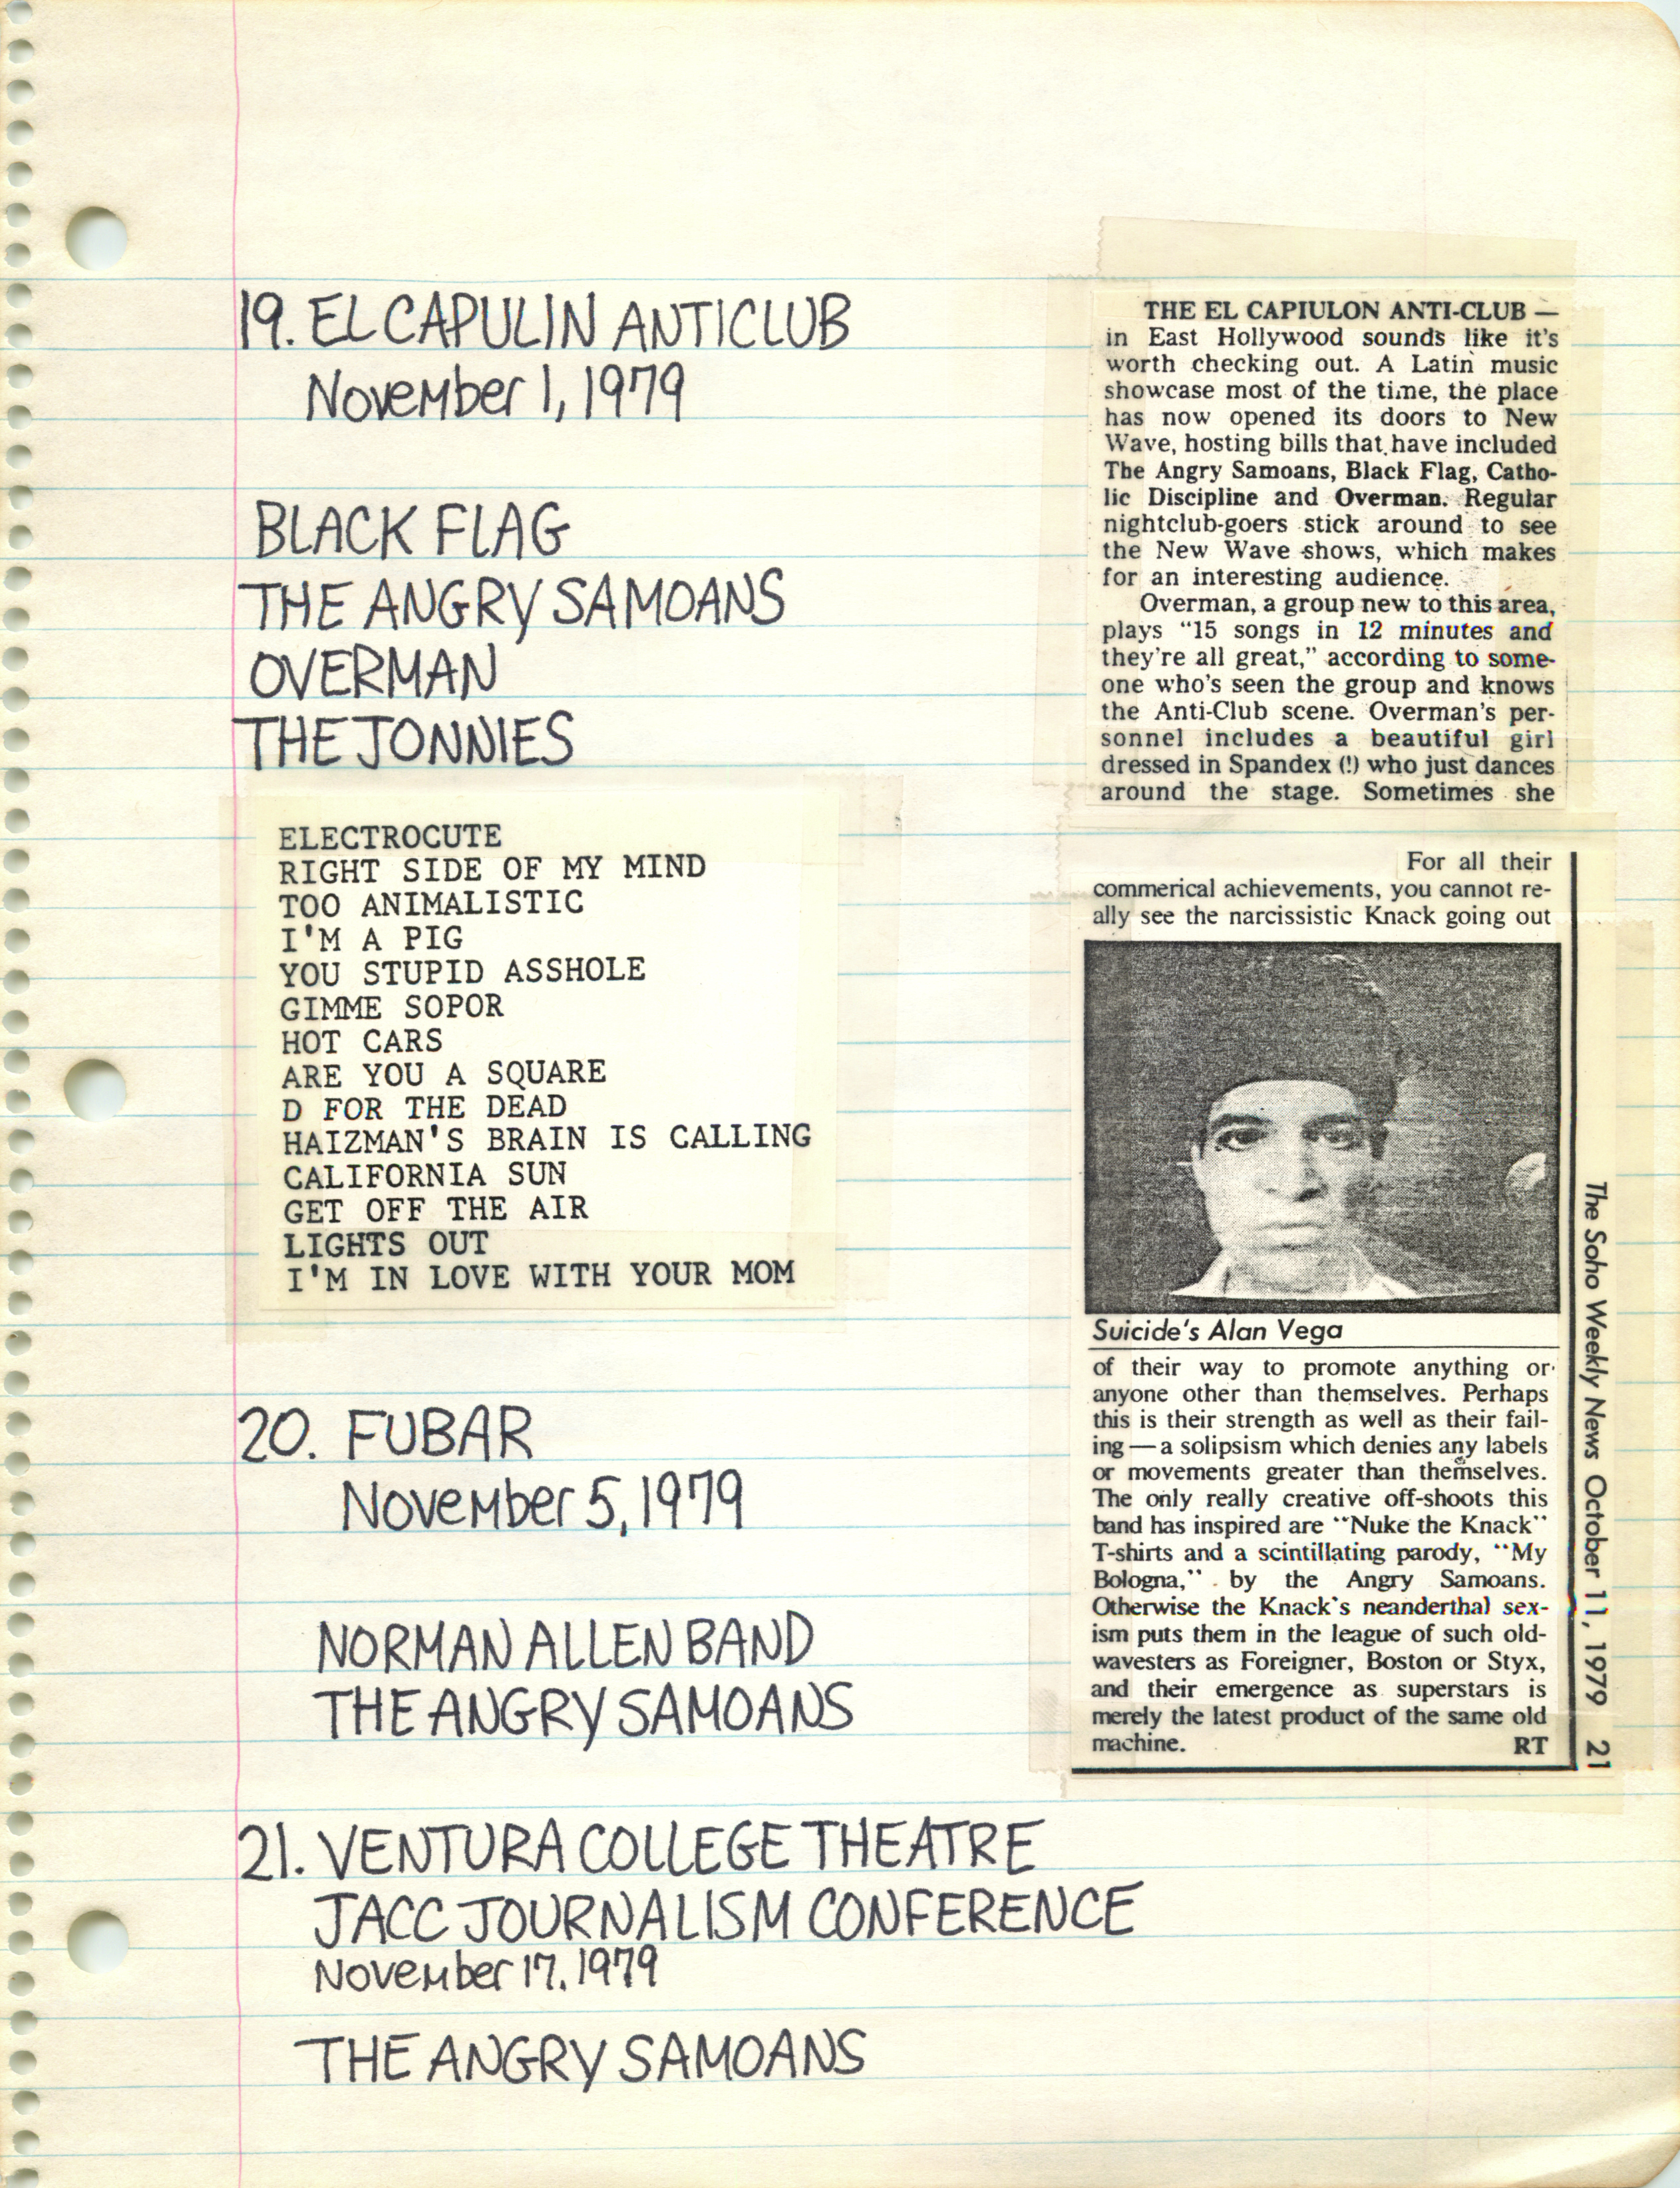 19. EL CAPULIN ANTICLUB
November 1, 1979
BLACK FLAG
THE ANGRY SAMOANS
OVERMAN
THE JONNIES
ELECTROCUTE
RIGHT SIDE OF MY MIND
TOO ANIMALISTIC
I'M A PIG
YOU STUPID ASSHOLE
GIMME SOPOR
HOT CARS
ARE YOU A SQUARE
D FOR THE DEAD
HAIZMAN'S BRAIN IS CALLING
CALIFORNIA SUN
GET OFF THE AIR
LIGHTS OUT
I'M IN LOVE WITH YOUR MOM
20. FUBAR
November 5, 1979
NORMAN ALLEN BAND
THE ANGRY SAMOANS
21. VENTURA COLLEGE THEATRE
JACC JOURNALISM CONFERENCE
November 17, 1979
THE ANGRY SAMOANS
THE EL CAPIULON ANTI-CLUB —
in East Hollywood sounds like it's
worth checking out. A Latin music
showcase most of the time, the place
has now opened its doors to New
Wave, hosting bills that have included
The Angry Samoans, Black Flag, Catho-
lic Discipline and Overman. Regular
nightclub-goers stick around to see
the New Wave shows, which makes
for an interesting audience.
Overman, a group new to this area,
plays “15 songs in 12 minutes and
they're all great,” according to some-
one who's seen the group and knows
the Anti-Club scene. Overman's per-
sonnel includes a beautiful girl
dressed in Spandex (!) who just dances
around the stage. Sometimes she
For all their
commerical achievements, you cannot re-
ally see the narcissistic Knack going out
Suicide's Alan Vega
of their way to promote anything or
anyone other than themselves. Perhaps
this is their strength as well as their fail-
ing — a solipsism which denies any labels
or movements greater than themselves.
The only really creative off-shoots this
band has inspired are “Nuke the Knack”
T-shirts and a scintillating parody, “My
Bologna,” by the Angry Samoans.
Otherwise the Knack's neanderthal sex-
ism puts them in the league of such old-
wavesters as Foreigner, Boston or Styx,
and their emergence as superstars is
merely the latest product of the same old
machine. RT
The Soho Weekly News October 11, 1979 21